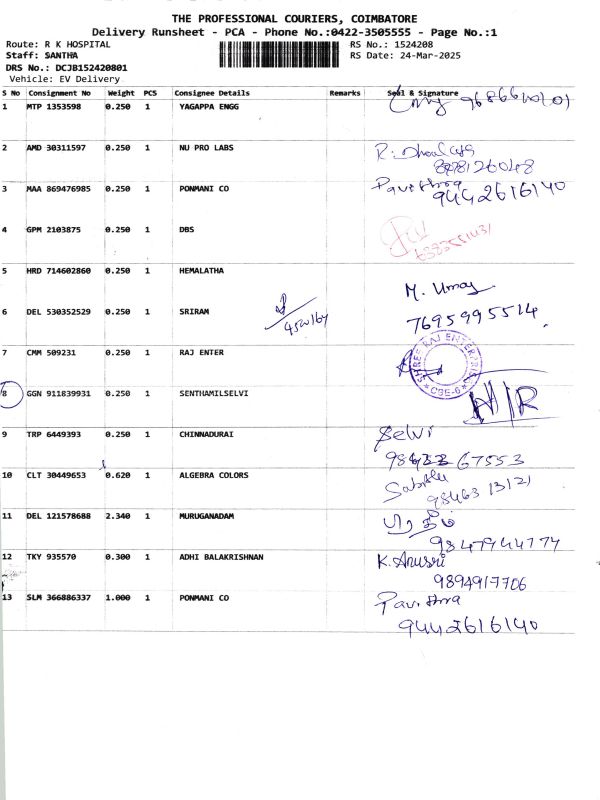 THE PROFESSIONAL COURIERS, COIMBATORE
Delivery Runsheet - PCA - Phone No.:0422-3505555 - Page No.:1
Route: R K HOSPITAL RS No.: 1524208
Staff: SANTHA RS Date: 24-Mar-2025
DRS No.: DCJB152420801
Vehicle: EV Delivery
S No Consignment No Weight PCS Consignee Details Remarks Seal & Signature
1 MTP 1353598 0.250 1 YAGAPPA ENGG
2 AMD 30311597 0.250 1 NU PRO LABS
3 MAA 869476985 0.250 1 PONMANI CO Pavithra
9442616140
4 GPM 2103875 0.250 1 DBS
5 HRD 714602860 0.250 1 HEMALATHA M. Umay
6 DEL 530352529 0.250 1 SRIRAM 7695995514
7 CMM 509231 0.250 1 RAJ ENTER SHREE RAJ ENTERPRISE CBE-6
8 GGN 911839931 0.250 1 SENTHAMILSELVI N/R
9 TRP 6449393 0.250 1 CHINNADURAI Selvi
67553
10 CLT 30449653 0.620 1 ALGEBRA COLORS
98463 13121
11 DEL 121578688 2.340 1 MURUGANADAM
9847944774
12 TKY 935570 0.300 1 ADHI BALAKRISHNAN K. Anusri
9894917706
13 SLM 366886337 1.000 1 PONMANI CO Pavithra
9442616140